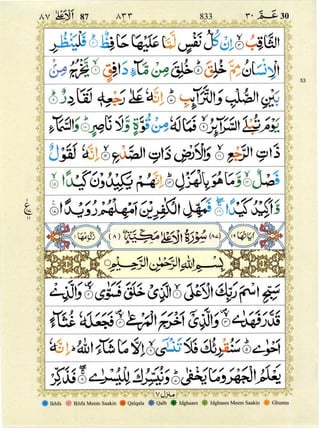 ٨٧ الاعلى 87 ٨٣٣ 833 ٣٠ عم 30
الثَّاقِبُ ۙ﴿۳﴾ اِنْ كُلُّ نَفْسٍ لَّمَّا عَلَيْهَا حَافِظٌ ؕ﴿۴﴾ فَلْيَنْظُرِ
الْاِنْسَانُ مِمَّ خُلِقَ ؕ﴿۵﴾ خُلِقَ مِنْ مَّآءٍ دَافِقٍ ۙ﴿۶﴾ يَّخْرُجُ مِنْۢ
بَيْنِ الصُّلْبِ وَالتَّرَآئِبِ ؕ﴿۷﴾ اِنَّهٗ عَلٰى رَجْعِهٖ لَقَادِرٌ ؕ﴿۸﴾
يَوْمَ تُبْلَى السَّرَآئِرُ ۙ﴿۹﴾ فَمَا لَهٗ مِنْ قُوَّةٍ وَّلَا نَاصِرٍ ؕ﴿۱۰﴾ وَالسَّمَآءِ
ذَاتِ الرَّجْعِ ۙ﴿۱۱﴾ وَالْاَرْضِ ذَاتِ الصَّدْعِ ۙ﴿۱۲﴾ اِنَّهٗ لَقَوْلٌ
فَصْلٌ ۙ﴿۱۳﴾ وَّمَا هُوَ بِالْهَزْلِ ؕ﴿۱۴﴾ اِنَّهُمْ يَكِيْدُوْنَ كَيْدًا ۙ﴿۱۵﴾
وَّاَكِيْدُ كَيْدًا ۚ﴿۱۶﴾ فَمَهِّلِ الْكٰفِرِيْنَ اَمْهِلْهُمْ رُوَيْدًا ﴿۱۷﴾
اٰيَاتُهَا ١٩ (٨٧) سُوْرَةُ الْاَعْلٰى مَكِّيَّةٌ (٨) رُكُوْعُهَا ١
بِسْمِ اللّٰهِ الرَّحْمٰنِ الرَّحِيْمِ
سَبِّحِ اسْمَ رَبِّكَ الْاَعْلَى ۙ﴿۱﴾ الَّذِيْ خَلَقَ فَسَوّٰى ۙ﴿۲﴾ وَالَّذِيْ
قَدَّرَ فَهَدٰى ۙ﴿۳﴾ وَالَّذِيْۤ اَخْرَجَ الْمَرْعٰى ۙ﴿۴﴾ فَجَعَلَهٗ غُثَآءً
اَحْوٰى ؕ﴿۵﴾ سَنُقْرِئُكَ فَلَا تَنْسٰٓى ۙ﴿۶﴾ اِلَّا مَا شَآءَ اللّٰهُ ؕ اِنَّهٗ
يَعْلَمُ الْجَهْرَ وَمَا يَخْفٰى ؕ﴿۷﴾ وَنُيَسِّرُكَ لِلْيُسْرٰى ۚ﴿۸﴾ فَذَكِّرْ
منزل ٧
53
Ikhfa Ikhfa Meem Saakin Qalqala Qalb Idghaam Idghaam Meem Saakin Ghunna